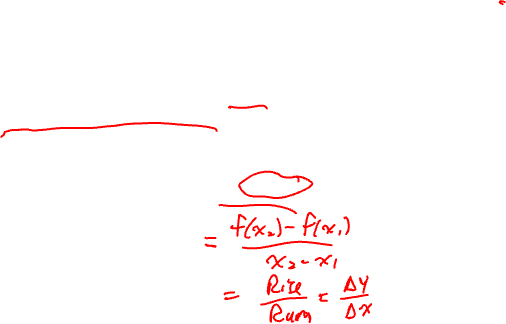 = f(x₂) - f(x₁) / x₂ - x₁
= Rise / Run = ΔY / ΔX